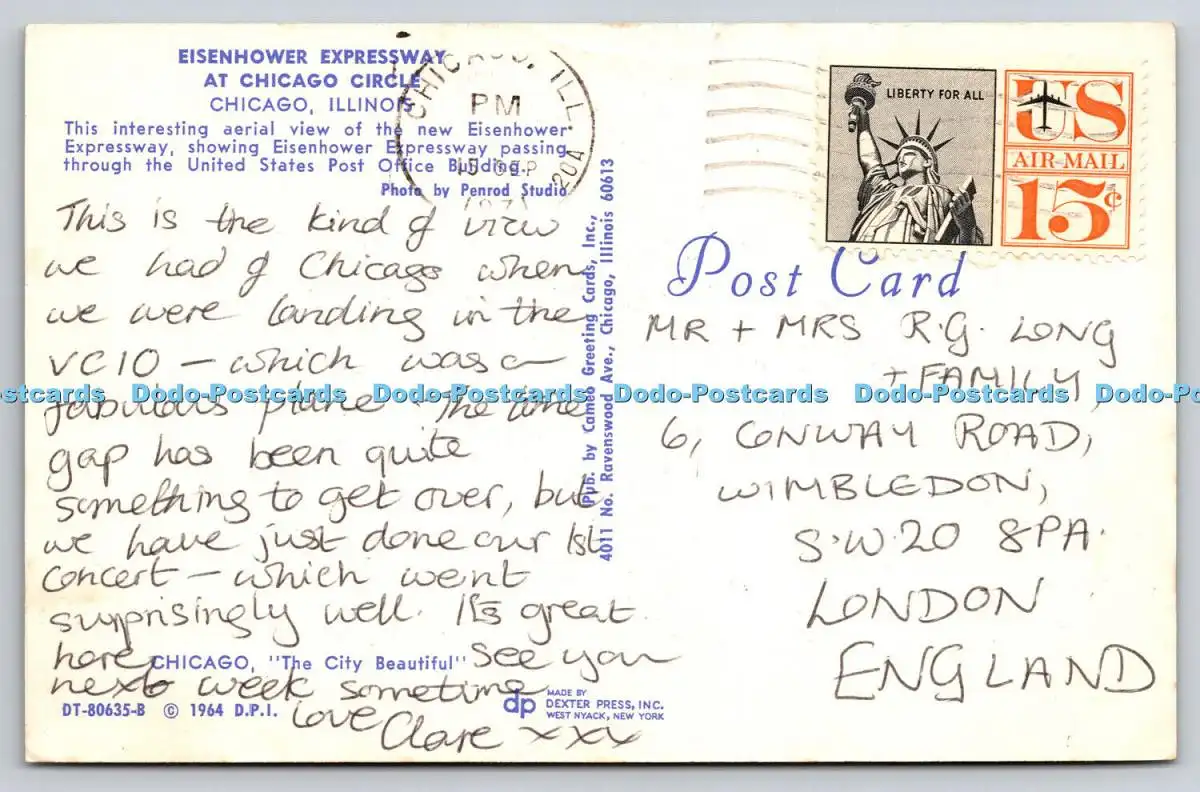 EISENHOWER EXPRESSWAY
AT CHICAGO CIRCLE
CHICAGO, ILLINOIS
This interesting aerial view of the new Eisenhower
Expressway, showing Eisenhower Expressway passing
through the United States Post Office Building.
Photo by Penrod Studio
CHICAGO, ILL.
PM
15 SEP
1971
20A
This is the kind of view
we had of Chicago when
we were landing in the
VC10 – which was a
fabulous plane. The time
gap has been quite
something to get over, but
we have just done our 1st
concert – which went
surprisingly well. It's great
here. See you
next week sometime
Love
Clare xxx
CHICAGO, "The City Beautiful"
DT-80635-B © 1964 D.P.I.
dp
MADE BY
DEXTER PRESS, INC.
WEST NYACK, NEW YORK
Pub. by Cameo Greeting Cards, Inc.,
4011 No. Ravenswood Ave., Chicago, Illinois 60613
LIBERTY FOR ALL
US
AIR MAIL
15¢
Post Card
MR + MRS R.G. LONG
+ FAMILY,
6, CONWAY ROAD,
WIMBLEDON,
S.W.20 8PA.
LONDON
ENGLAND
Dodo-Postcards Dodo-Postcards Dodo-Postcards Dodo-Postcards Dodo-Postcards